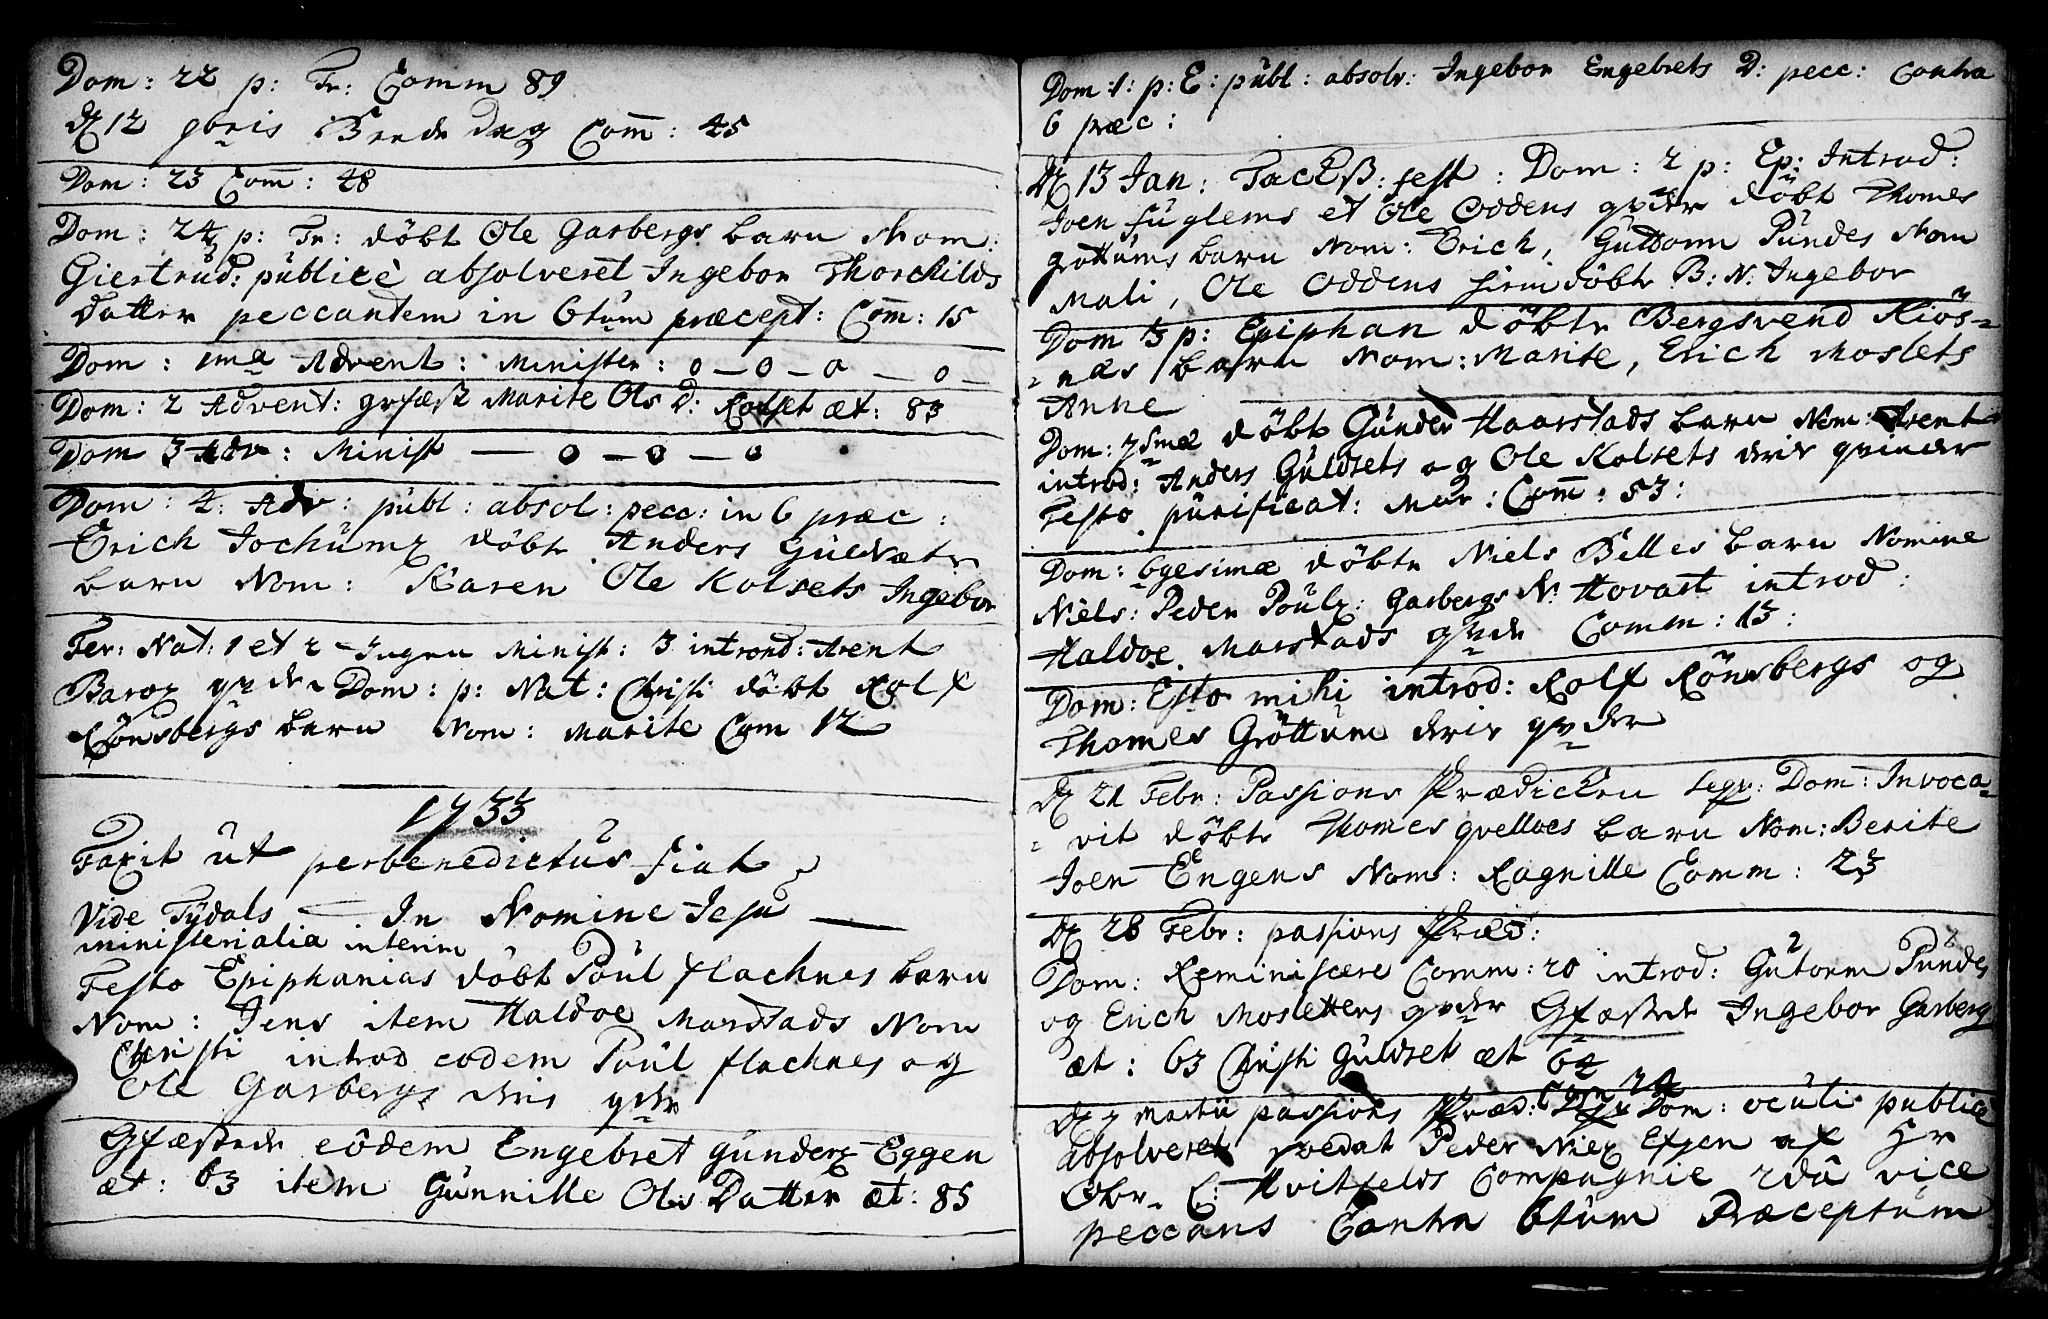 Dom: 22 p: Tr: Comm 89
dζ 12 9bris Beede Dag Com̅: 45
Dom: 23 Com̅: 48
Dom: 24 p: Tr: döbt Ole Garbergs barn Nom:
Giertrud: publicè absolveret Ingebor Thorchilds
datter peccantem in 6tum præcept: Com̅: 15
Dom: 1ma Advent: Minister: o – o – o – o –
Dom: 2 Advent: grfæst Marite Ols D: Rotset æt: 83
Dom 3 Adv: Minist — o – o – o
Dom: 4. Adv: publ: absol: pecc: in 6 præc:
Erich Jochumζ döbte Anders Guldsets
barn Nom: Karen Ole Kolsets Ingebor
Fer: Nat: 1 et 2 Ingen Minist: 3 introd: Arent
Baroζ qvde Dom: p: Nat: Christi döbt Rolf
Rönsbergs barn Nom: Marite Com 12
1733
Faxit ut perbenedictus fiat
Vide Tydals — In Nomine Jesu —
ministerialia interim
Festo Epiphanias döbt Poul flachnes barn
Nom: Jens item Haldoe Marstads Nom
Christi introd eodem Poul flachnes og
Ole Garbergs deris qvdr
Gfæstede eodem Engebret Gunderζ Eggen
æt: 63 item Gunnille Ols Datter æt: 85
Dom: 1: p: E: publ: absolv: Ingebor Engebrets D: pecc: Contra
6 præc:
Dζ 13 Jan: Tackß: fest: Dom: 2 p: Ep: Introd:
Joen fuglems et Ole Oddens qvder döbt Thomes
grøttums barn Nom: Erich, Guttorm Pundes Nom
Mali, Ole Oddens hiemdöbte B: N: Ingebor
Dom 3 p: Epiphan döbte Bergsvend Kiös-
næs barn Nom: Marite, Erich Moslets
Anne
Dom: 7sme döbt Gunder Haarstads barn Nom: Arent
introd: Anders Guldsets og Ole Kolsets deris qvinder
Festo purificat: Mar: Com̅: 53:
Dom: 6gesimæ döbte Niels Belles barn Nomine
Niels: Peder Poulζ: Garbergs N: Hovart introd:
Haldoe Marstads qvde Comm: 13:
Dom: Esto mihi introd: Rolf Rönsbergs og
Thomes Gröttum deris qvder
Dζ 21 Febr: Passions Prædicken Dom: Invoca-
vit döbte Thomes qvelloes barn Nom: Berite
Joen Engens Nom: Ragnille Comm: 23
Dζ 28 Febr: passions Præd:
Dom: Reminiscere Comm: 20 introd: Gutorm Pundes
og Erich Mosletters qvder Gfæstede Ingebor Garberg
æt: 63 Christi Guldset æt 64
Dζ 7 Martii passions Præd: Dom: oculi publicè
absolveret soldat Peder Nielζ af Hr
Obr. L: Hvitfelds Compagnie 2da vice
peccans Contra 6tum Præceptum